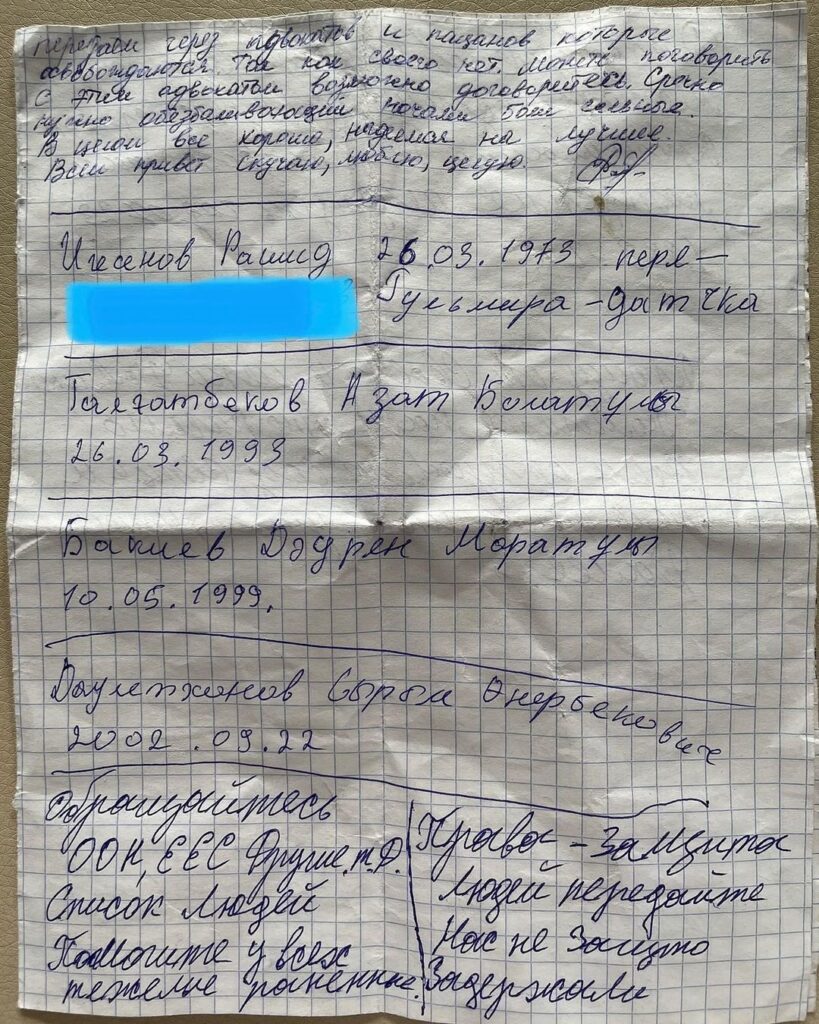 передаем через адвокатов и пацанов которые
освобождаются. Так как своего нет. Можете поговорить
с этим адвокатом возможно договоритесь. Срочно
нужно обезбаливающий начали боли сильные.
В целом все хорошо, надеемся на лучшее.
Всем привет скучаю, люблю, целую.
Рашид 26.03.1973
Гульмира - датчка
Азат Болатулы
26.03.1993
Бакиев Дәурен Моратулы
10.05.1999.
Даулетханов Сырым Өнербекович
2002.09.22
Обращайтесь
ООН, ЕЕС Другие т.д.
Список Людей
Памогите у всех
тежелые раненные.
Права - Замщита
Людей передайте
Нас не защто
Задержали